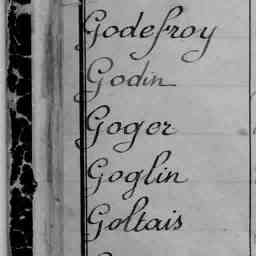 Godefroy
Godin
Goger
Goglin
Goltais